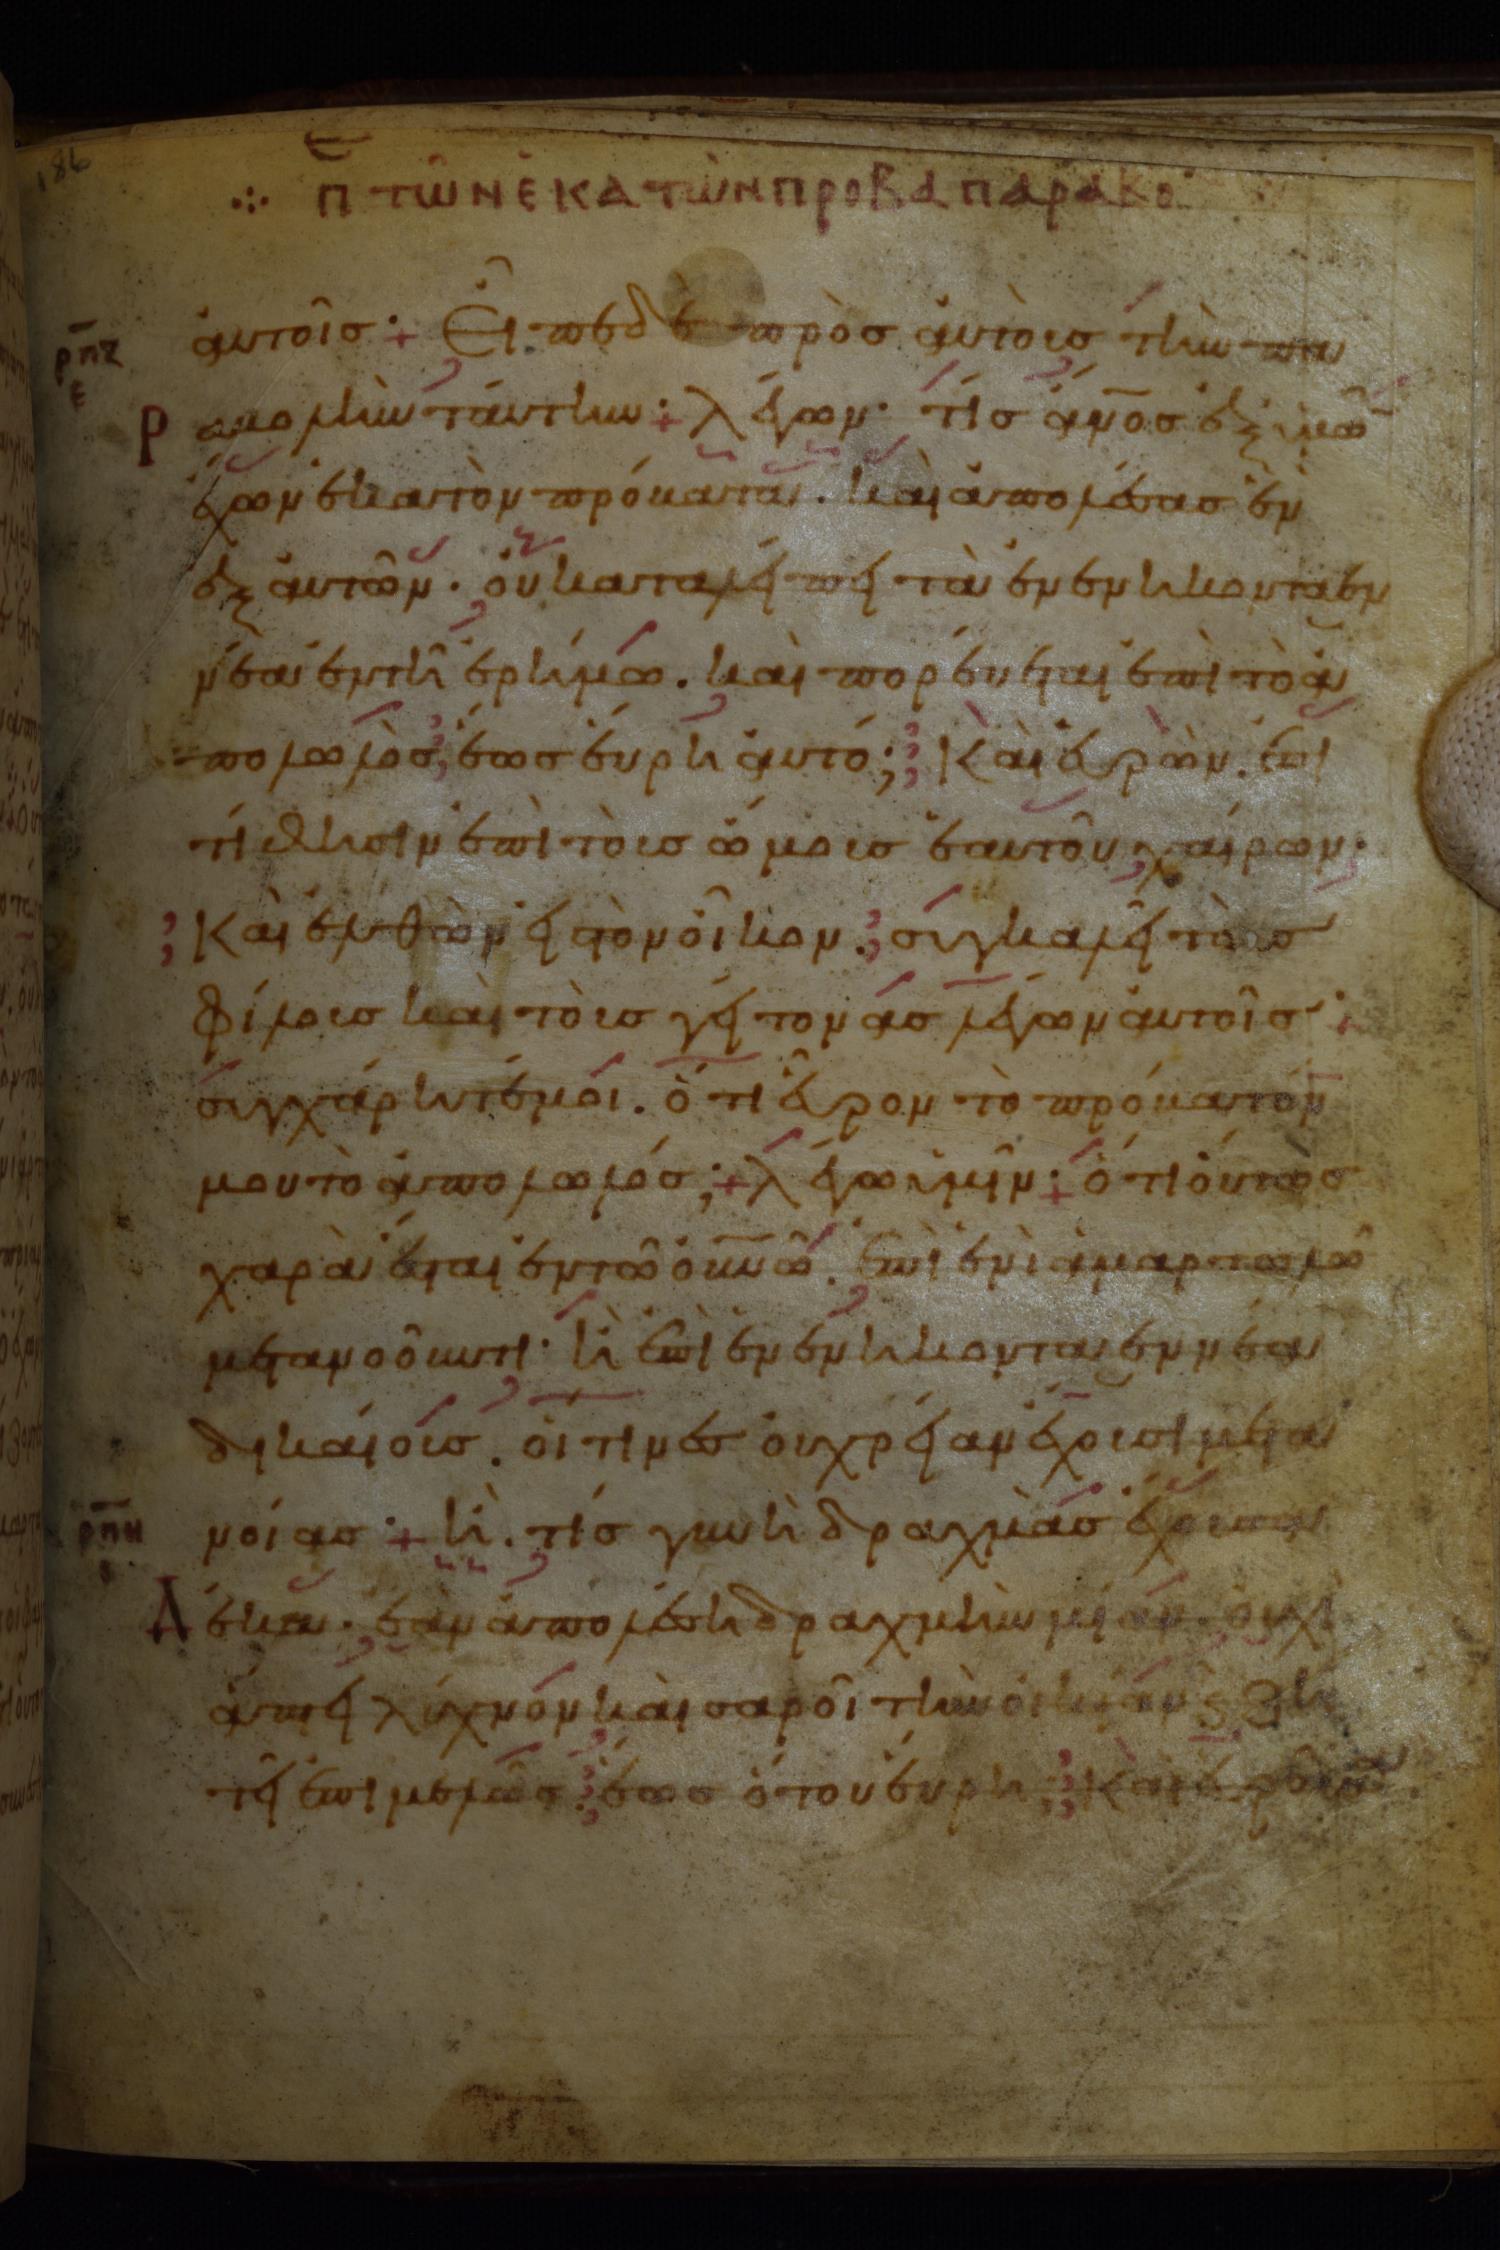 186
Π τῶν ἑκατὼν προβα παραβο
αὐτοῖσ· + Εἶπεδὲ πρὸσ αὐτοὺσ τὴν πα
ρπζ
ε
Ραβολὴν ταύτην· + λέγων· τίσ ἄν̅οσ ἐξ ὑμῶ
ἔχων ἑκατὸν πρόβατα. καὶ ἀπολέσασ ἓν
ἐξ αὐτῶν. οὐ καταλείπει τὰ ἐνενήκοντα ἐν
νέα ἐν τῆ ἐρήμω. καὶ πορεύεται ἐπὶ τὸ ἀ
πολωλὸσ, ἕωσ εὕρη αὐτό; Καὶ εὑρὼν. ἐπι
τίθησιν ἐπὶ τοὺσ ὤμουσ ἑαυτοῦ χαίρων·
Καὶ ἐλθὼν εἰσ τὸν οἶκον. συγκαλεῖ τοὺσ
φίλουσ καὶ τοὺσ γείτονασ λέγων αὐτοῖσ·
συγχάρητέ μοι. ὅτι εὗρον τὸ πρόβατόν
μου τὸ ἀπολωλόσ; + λέγω ὑμῖν· + ὅτι οὕτωσ
χαρὰ ἔσται ἐν τῶ οὐ̅νῶ. ἐπὶ ἑνὶ ἁμαρτωλῶ
μετανοοῦντι· ἢ ἐπὶ ἐνενήκοντα ἐννέα
δικαίοισ. οἵτινεσ οὐ χρείαν ἔχουσι μετα
ρπη
νοίασ· + ἢ. τίσ γυνὴ δραχμὰσ ἔχουσα
Δέκα. ἐὰν ἀπολέση δραχμὴν μίαν. οὐχὶ
ἅπτει λύχνον καὶ σαροῖ τὴν οἰκίαν ζη
τεῖ ἐπιμελῶσ. ἕωσ ὅτου εὕρη; Καὶ εὑροῦσα